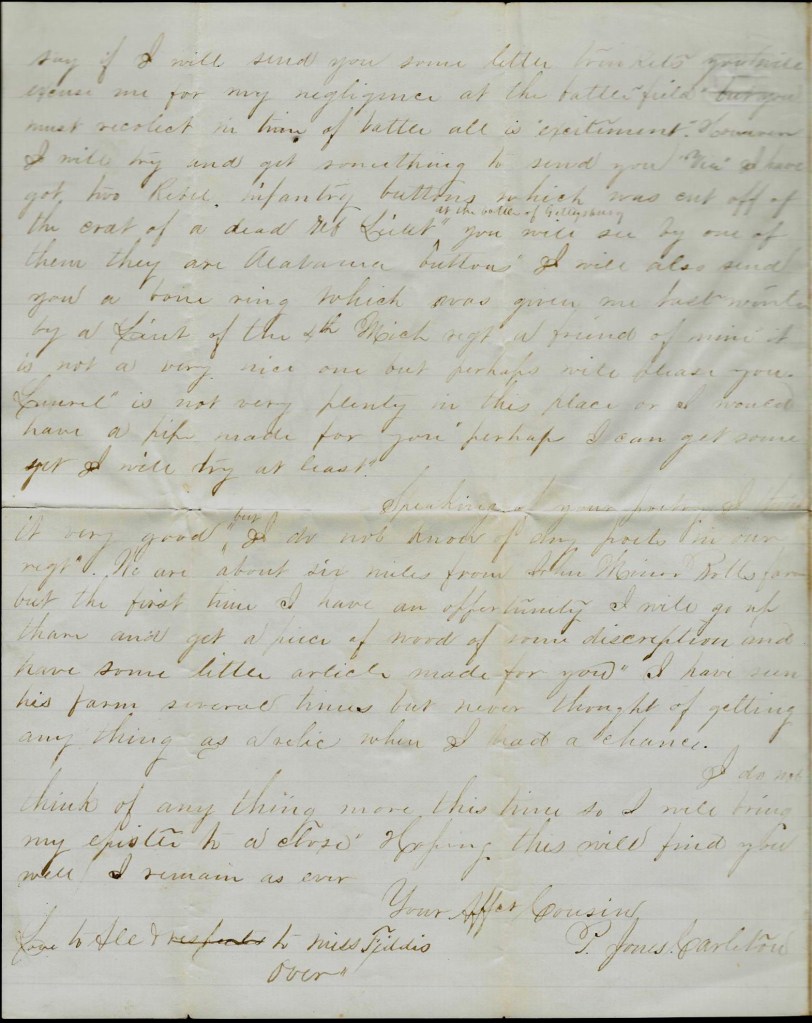 say if I will send you some little trinkets you will
excuse me for my negligence at the battlefield" but you
must recolect in time of battle all is excitement".
I will try and get something to send you I have
got, two Rebel. infantry buttons which was cut off of
at the battle of Gettysburg
the coat of a dead reb Lieut" you will see by one of
them they are Alabama buttons" I will also send
you a bone ring which was given me last winter
by a Lieut of the 4th Mich regt a friend of mine it
is not a very nice one but perhaps will please you.
Laurel" is not very plenty in this place or I would
have a pipe made for you" perhaps I can get some
yet I will try at least"
Speaking of your I think
but
it very good", I do not know of any poets in our
regt". We are about six miles from John Minor Botts farm
but the first time I have an offertunity I will go up
thare and get a piece of wood of some discreption and
have some little article made for you" I have seen
his farm several times but never thought of getting
any thing as a relic when I had a chance.
I do not
think of any thing more this time so I will bring
my epistle to a close" Hoping this will find you
well I remain as ever
Your Affct Cousin
Love to All & respects to Miss P. Jones. Carleton
Over"